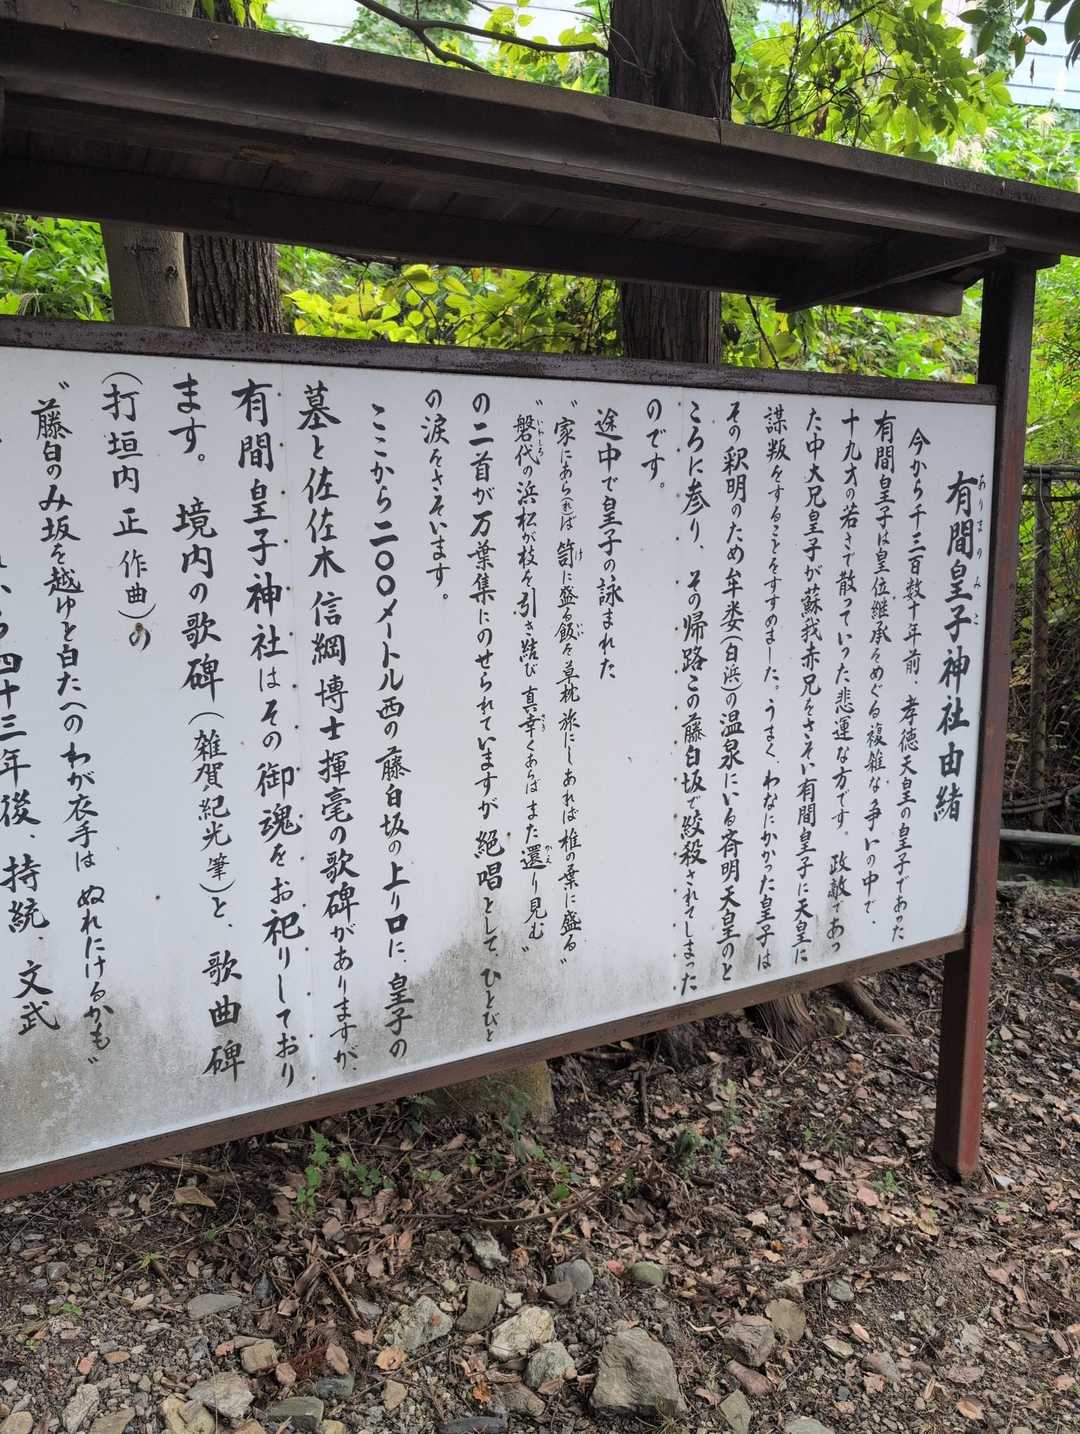 有間皇子神社由緒
ありまのみこ
今から千三百数十年前、孝徳天皇の皇子であった
有間皇子は皇位継承をめぐる複雑な争いの中で、
十九才の若さで散っていった悲運な方です。政敵であっ
た中大兄皇子が蘇我赤兄をさそい有間皇子に天皇に
謀叛をすることをすすめました。うまく、わなにかかった皇子は
その釈明のため牟婁(白浜)の温泉にいる斉明天皇のと
ころに参り、その帰路この藤白坂で絞殺されてしまった
のです。
途中で皇子の詠まれた
〝家にあら(れ)ば笥に盛る飯を草枕旅にしあれば椎の葉に盛る〟
け いい
〝磐代の浜松が枝を引き結び真幸くあらばまた還り見む〟
いわしろ さき かえ
の二首が万葉集にのせられていますが絶唱として、ひとびと
の涙をさそいます。
ここから二〇〇メートル西の藤白坂の上り口に、皇子の
墓と佐佐木信綱博士揮毫の歌碑がありますが、
有間皇子神社はその御魂をお祀りしており
ます。境内の歌碑(雑賀紀光筆)と、歌曲碑
(打垣内正作曲)の
〝藤白のみ坂を越ゆと白たへのわが衣手はぬれにけるかも〟
四十三年後、持統、文武